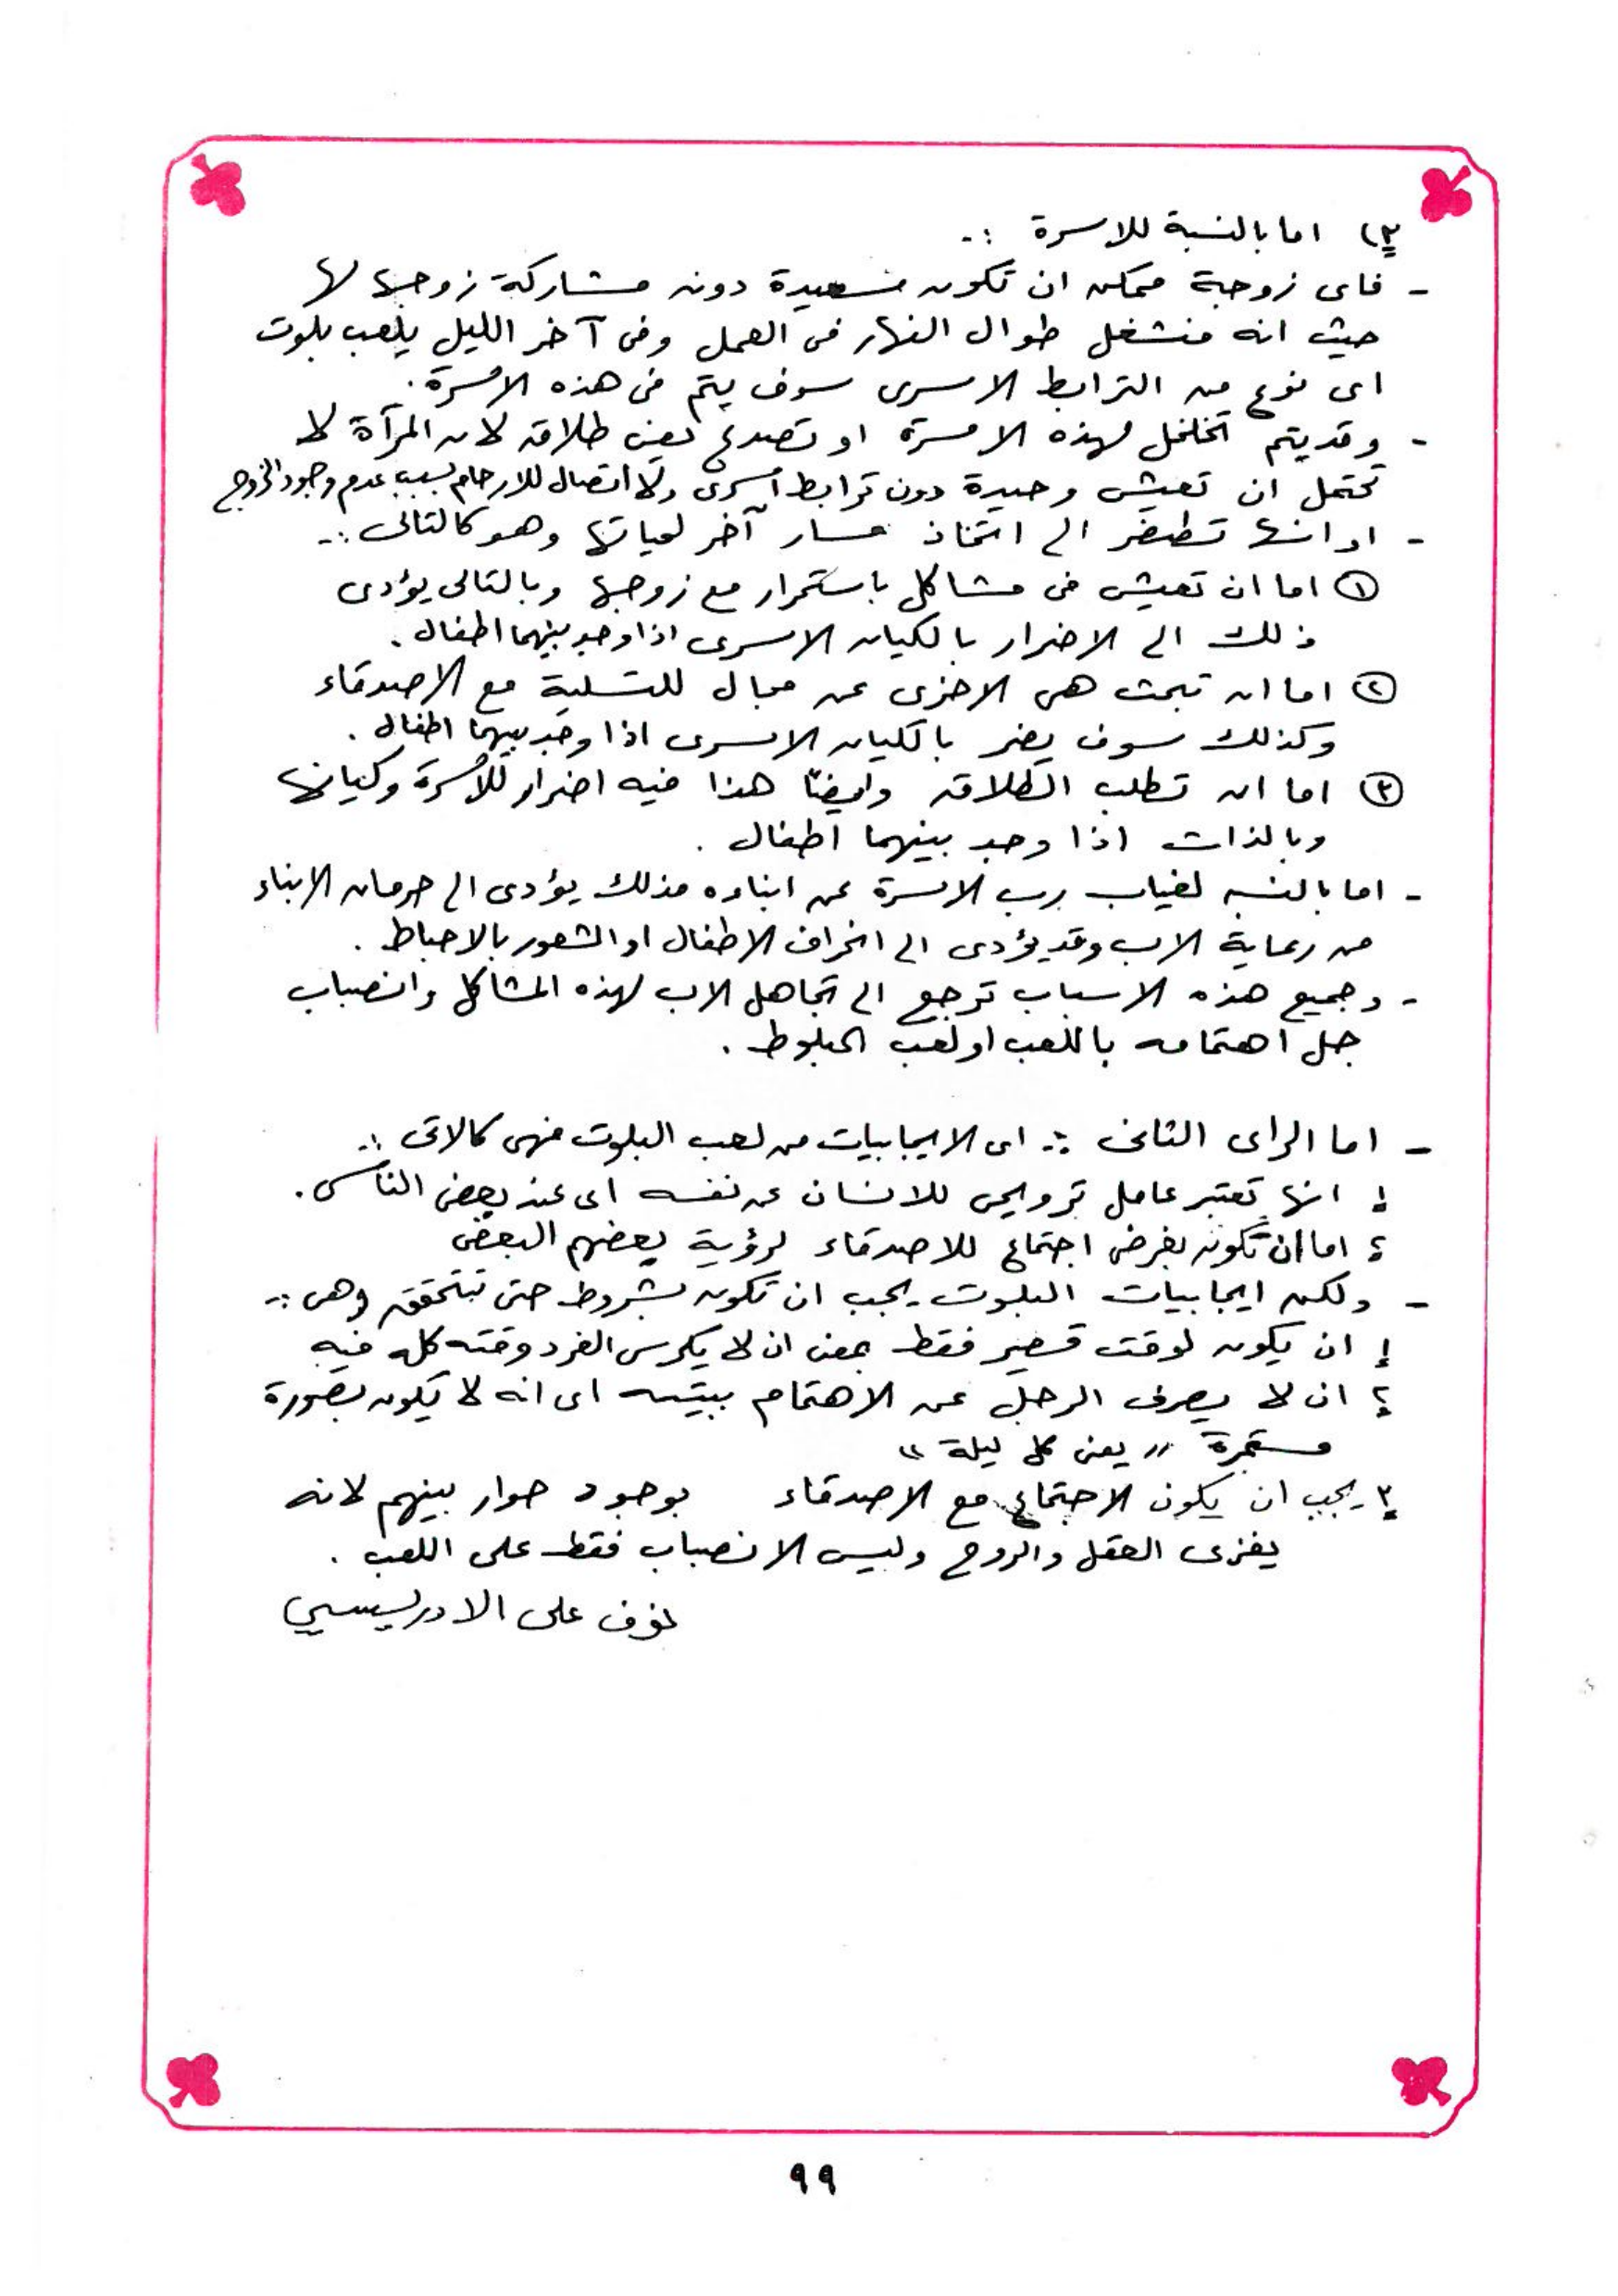 ٣) اما بالنسبة للاسرة :-
- فاى زوجة ممكن ان تكون سعيدة دون مشاركة زوجها لها
حيث انه منشغل طوال النهار فى العمل وفى آخر الليل يلعب بلوت
اى نوع من الترابط الاسرى سوف يتم فى هذه الأسرة .
- وقد يتم تخلخل لهذه الاسرة او تصدع يعنى طلاق لان المرآة لا
تحتمل ان تعيش وحيدة دون ترابط أسرى ولا اتصال للارحام بسبب عدم وجود الزوج
- او انها تضطر الى اتخاذ مسار آخر لحياتها وهو كالتالى :-
① اما ان تعيش فى مشاكل باستمرار مع زوجها وبالتالى يؤدى
ذلك الى الاضرار بالكيان الاسرى اذا وجد بينهما اطفال .
② اما ان تبحث هى الاخرى عن مجال للتسلية مع الاصدقاء
وكذلك سوف يضر بالكيان الاسرى اذا وجد بينهما اطفال .
③ اما ان تطلب الطلاق وايضًا هذا فيه اضرار للأسرة وكيانها
وبالذات اذا وجد بينهما اطفال .
- اما بالنسبه لغياب رب الاسرة عن ابناءه فذلك يؤدى الى حرمان الابناء
من رعاية الاب وقد يؤدى الى انحراف الاطفال او الشعور بالاحباط .
- وجميع هذه الاسباب ترجع الى تجاهل الاب لهذه المشاكل وانصباب
جل اهتمامه باللعب او لعب البلوط .
- اما الراى الثانى :- اى الايجابيات من لعب البلوت فهى كالاتى :-
١ انها تعتبر عامل ترويحى للانسان عن نفسه اى عند بعض الناس .
٢ اما ان تكون بغرض اجتماع للاصدقاء لرؤية بعضهم البعض
- ولكن ايجابيات البلوت يجب ان تكون بشروط حتى تتحقق وهى :-
١ ان يكون لوقت قصير فقط بمعنى ان لا يكرس الفرد وقته كله فيه
٢ ان لا يصرف الرجل عن الاهتمام ببيته اى انه لا يكون بصورة
مستمرة " يعنى كل ليلة "
٣ يجب ان يكون الاجتماع مع الاصدقاء بوجود حوار بينهم لانه
يغزى العقل والروح وليس الانصباب فقط على اللعب .
على الادريسي
٩٩